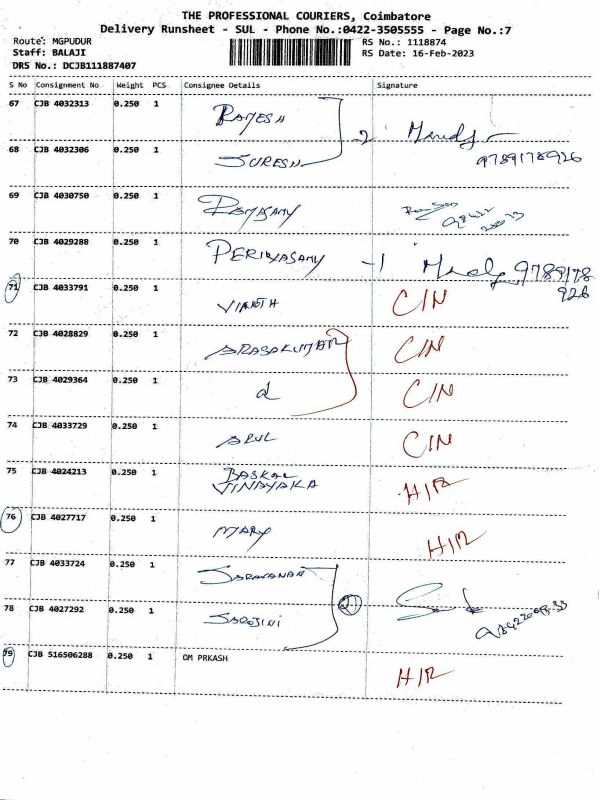 THE PROFESSIONAL COURIERS, Coimbatore
Delivery Runsheet - SUL - Phone No.:0422-3505555 - Page No.:7
Route: MGPUDUR RS No.: 1118874
Staff: BALAJI RS Date: 16-Feb-2023
DRS No.: DCJB111887407
S No Consignment No Weight PCS Consignee Details Signature
67 CJB 4032313 0.250 1 RAMESH
68 CJB 4032306 0.250 1 SURESH 2 9789178926
69 CJB 4030750 0.250 1 RAMASAMY
70 CJB 4029288 0.250 1 PERIYASAMY -1 9789178
926
71 CJB 4033791 0.250 1 VINOTH C/N
72 CJB 4028829 0.250 1 ARASAKUMAR C/N
73 CJB 4029364 0.250 1 C/N
74 CJB 4033729 0.250 1 ARUL C/N
75 CJB 4024213 0.250 1 BASKAL
VINAYAKA H/R
76 CJB 4027717 0.250 1 MARY H/R
77 CJB 4033724 0.250 1 SARAVANAN
2
78 CJB 4027292 0.250 1 SAROJINI
79 CJB 516506288 0.250 1 OM PRKASH H/R